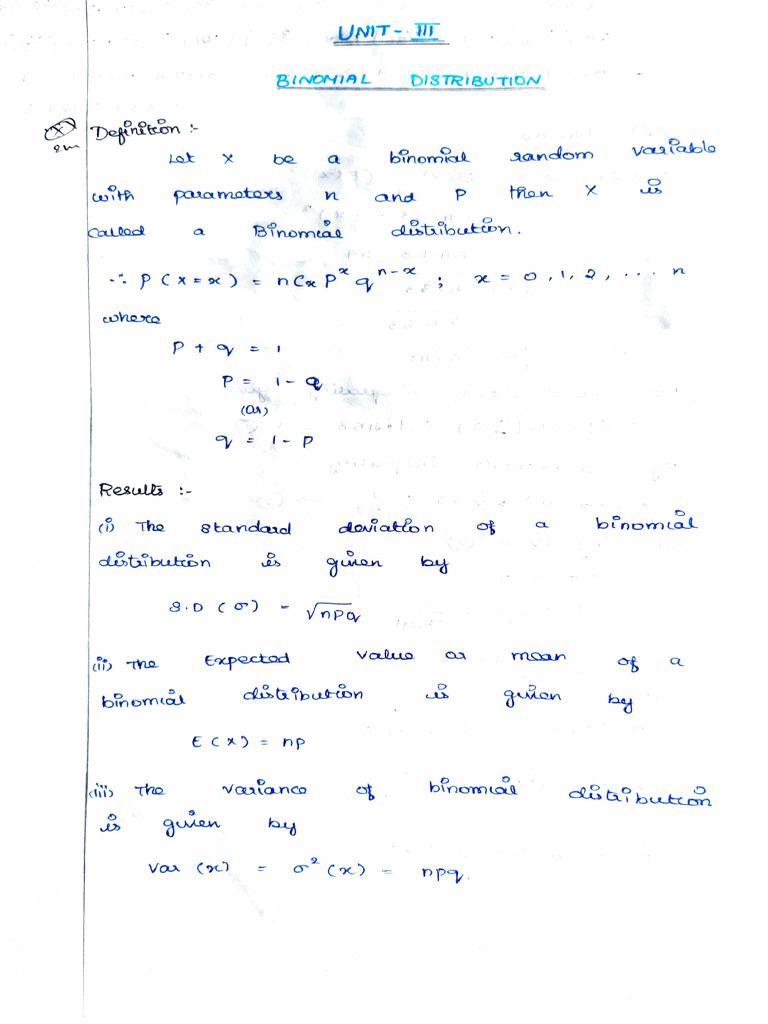 UNIT - III
BINOMIAL DISTRIBUTION
Definition :-
Let X be a binomial random variable
with parameters n and P then X is
called a Binomial distribution.
∴ P ( X = x ) = nCx P^x q^n-x ; x = 0, 1, 2, ... n
where
P + q = 1
P = 1 - q
(or)
q = 1 - P
Results :-
(i) The standard deviation of a binomial
distribution is given by
S.D (σ) = √npq
(ii) The Expected value or mean of a
binomial distribution is given by
E(x) = np
(iii) The variance of binomial distribution
is given by
Var (x) = σ² (x) = npq.